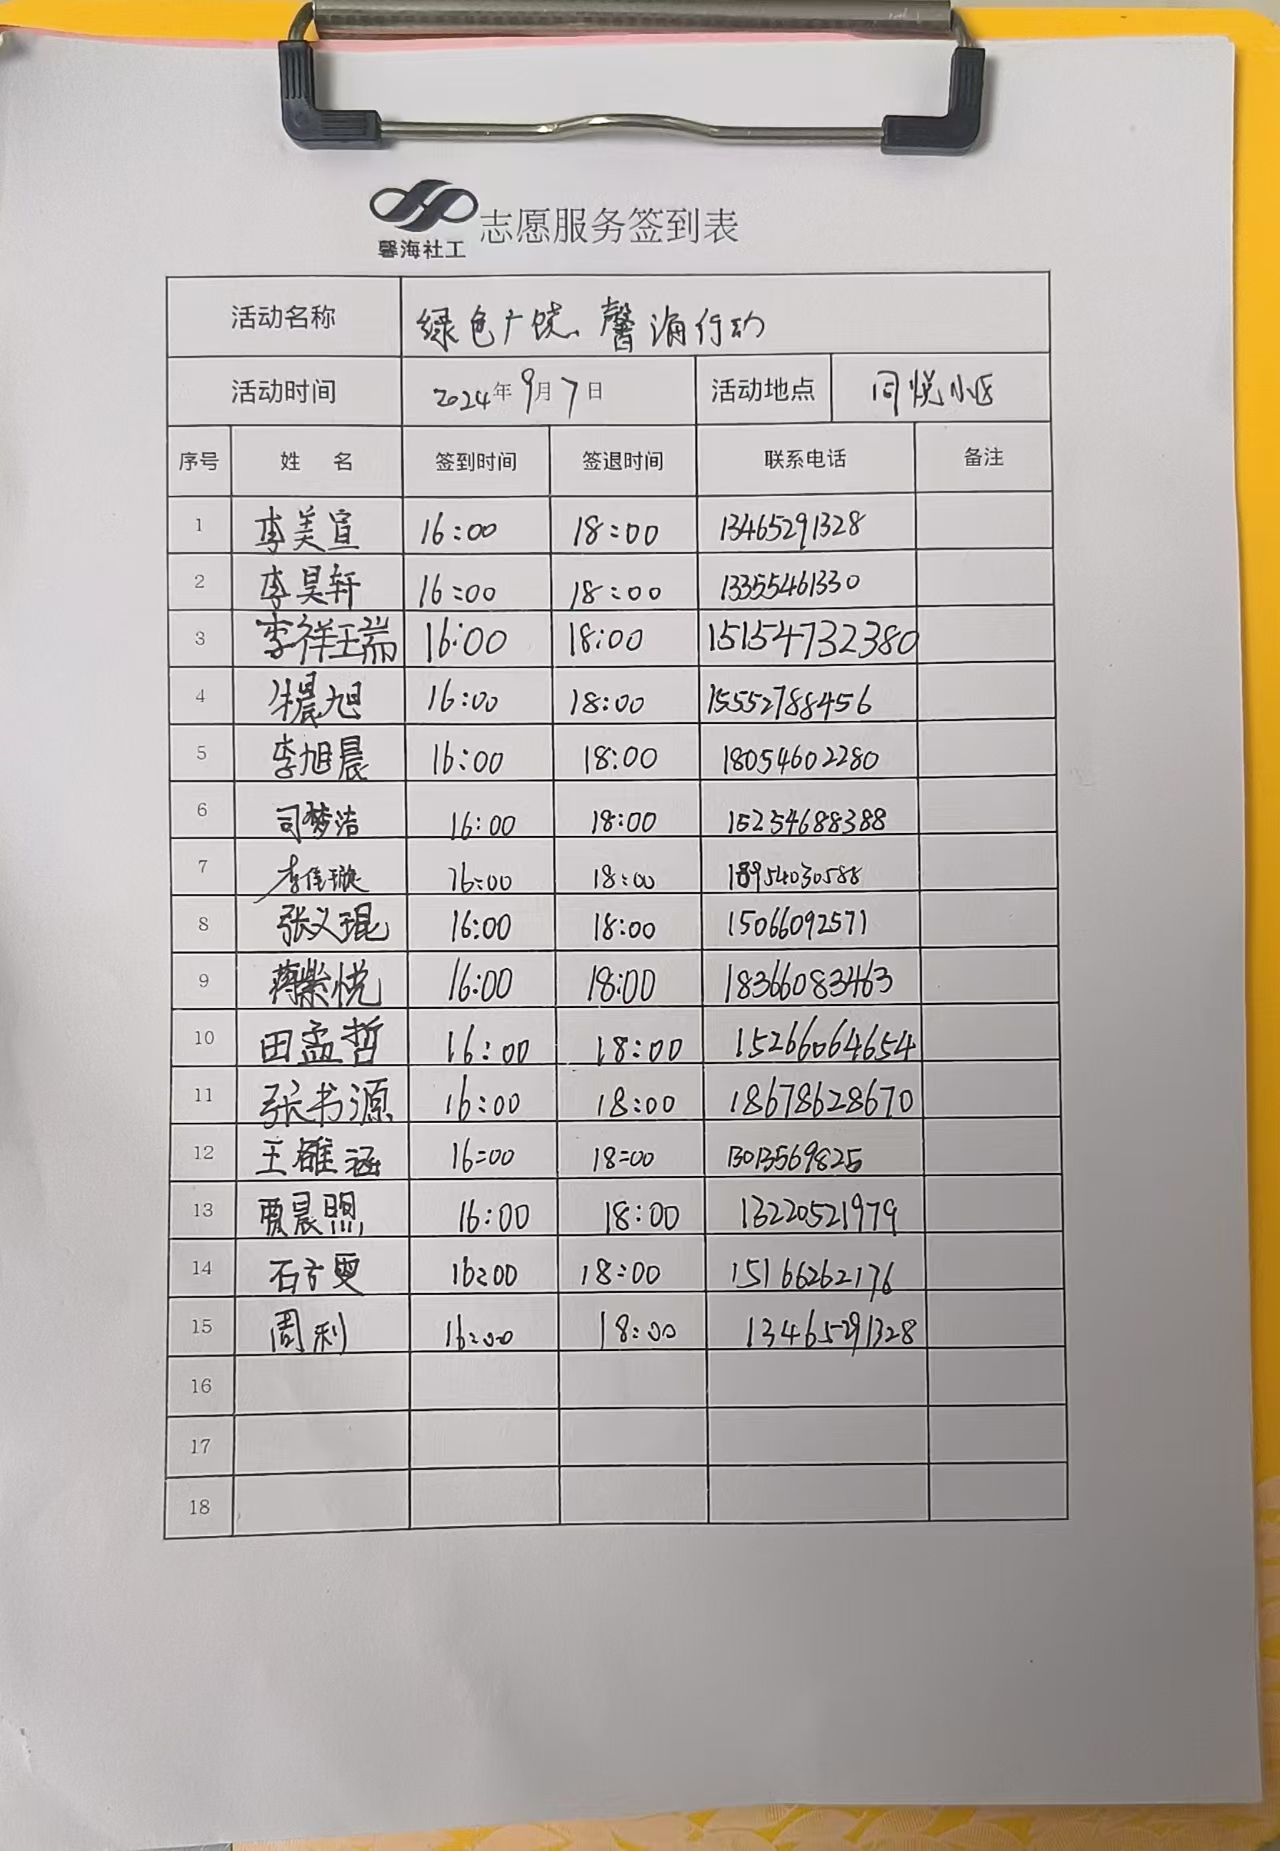 馨海社工 志愿服务签到表
活动名称 绿色广饶、馨海行动
活动时间 2024年9月7日 活动地点 同悦小区
序号 姓 名 签到时间 签退时间 联系电话 备注
1 李美宣 16:00 18:00 13465291328
2 李昊轩 16:00 18:00 13355461330
3 李祥瑞 16:00 18:00 15154732380
4 晨旭 16:00 18:00 15552788456
5 李旭晨 16:00 18:00 18054602280
6 司梦洁 16:00 18:00 15254688388
7 李佳璇 16:00 18:00 18954030588
8 张义琨 16:00 18:00 15066092571
9 蒋紫悦 16:00 18:00 18366083463
10 田孟哲 16:00 18:00 15266064654
11 张书源 16:00 18:00 18678628670
12 王雄涵 16:00 18:00 13013569825
13 贾晨煦 16:00 18:00 13220521979
14 石方雯 16:00 18:00 15166262176
15 周利 16:00 18:00 13465291328
16
17
18